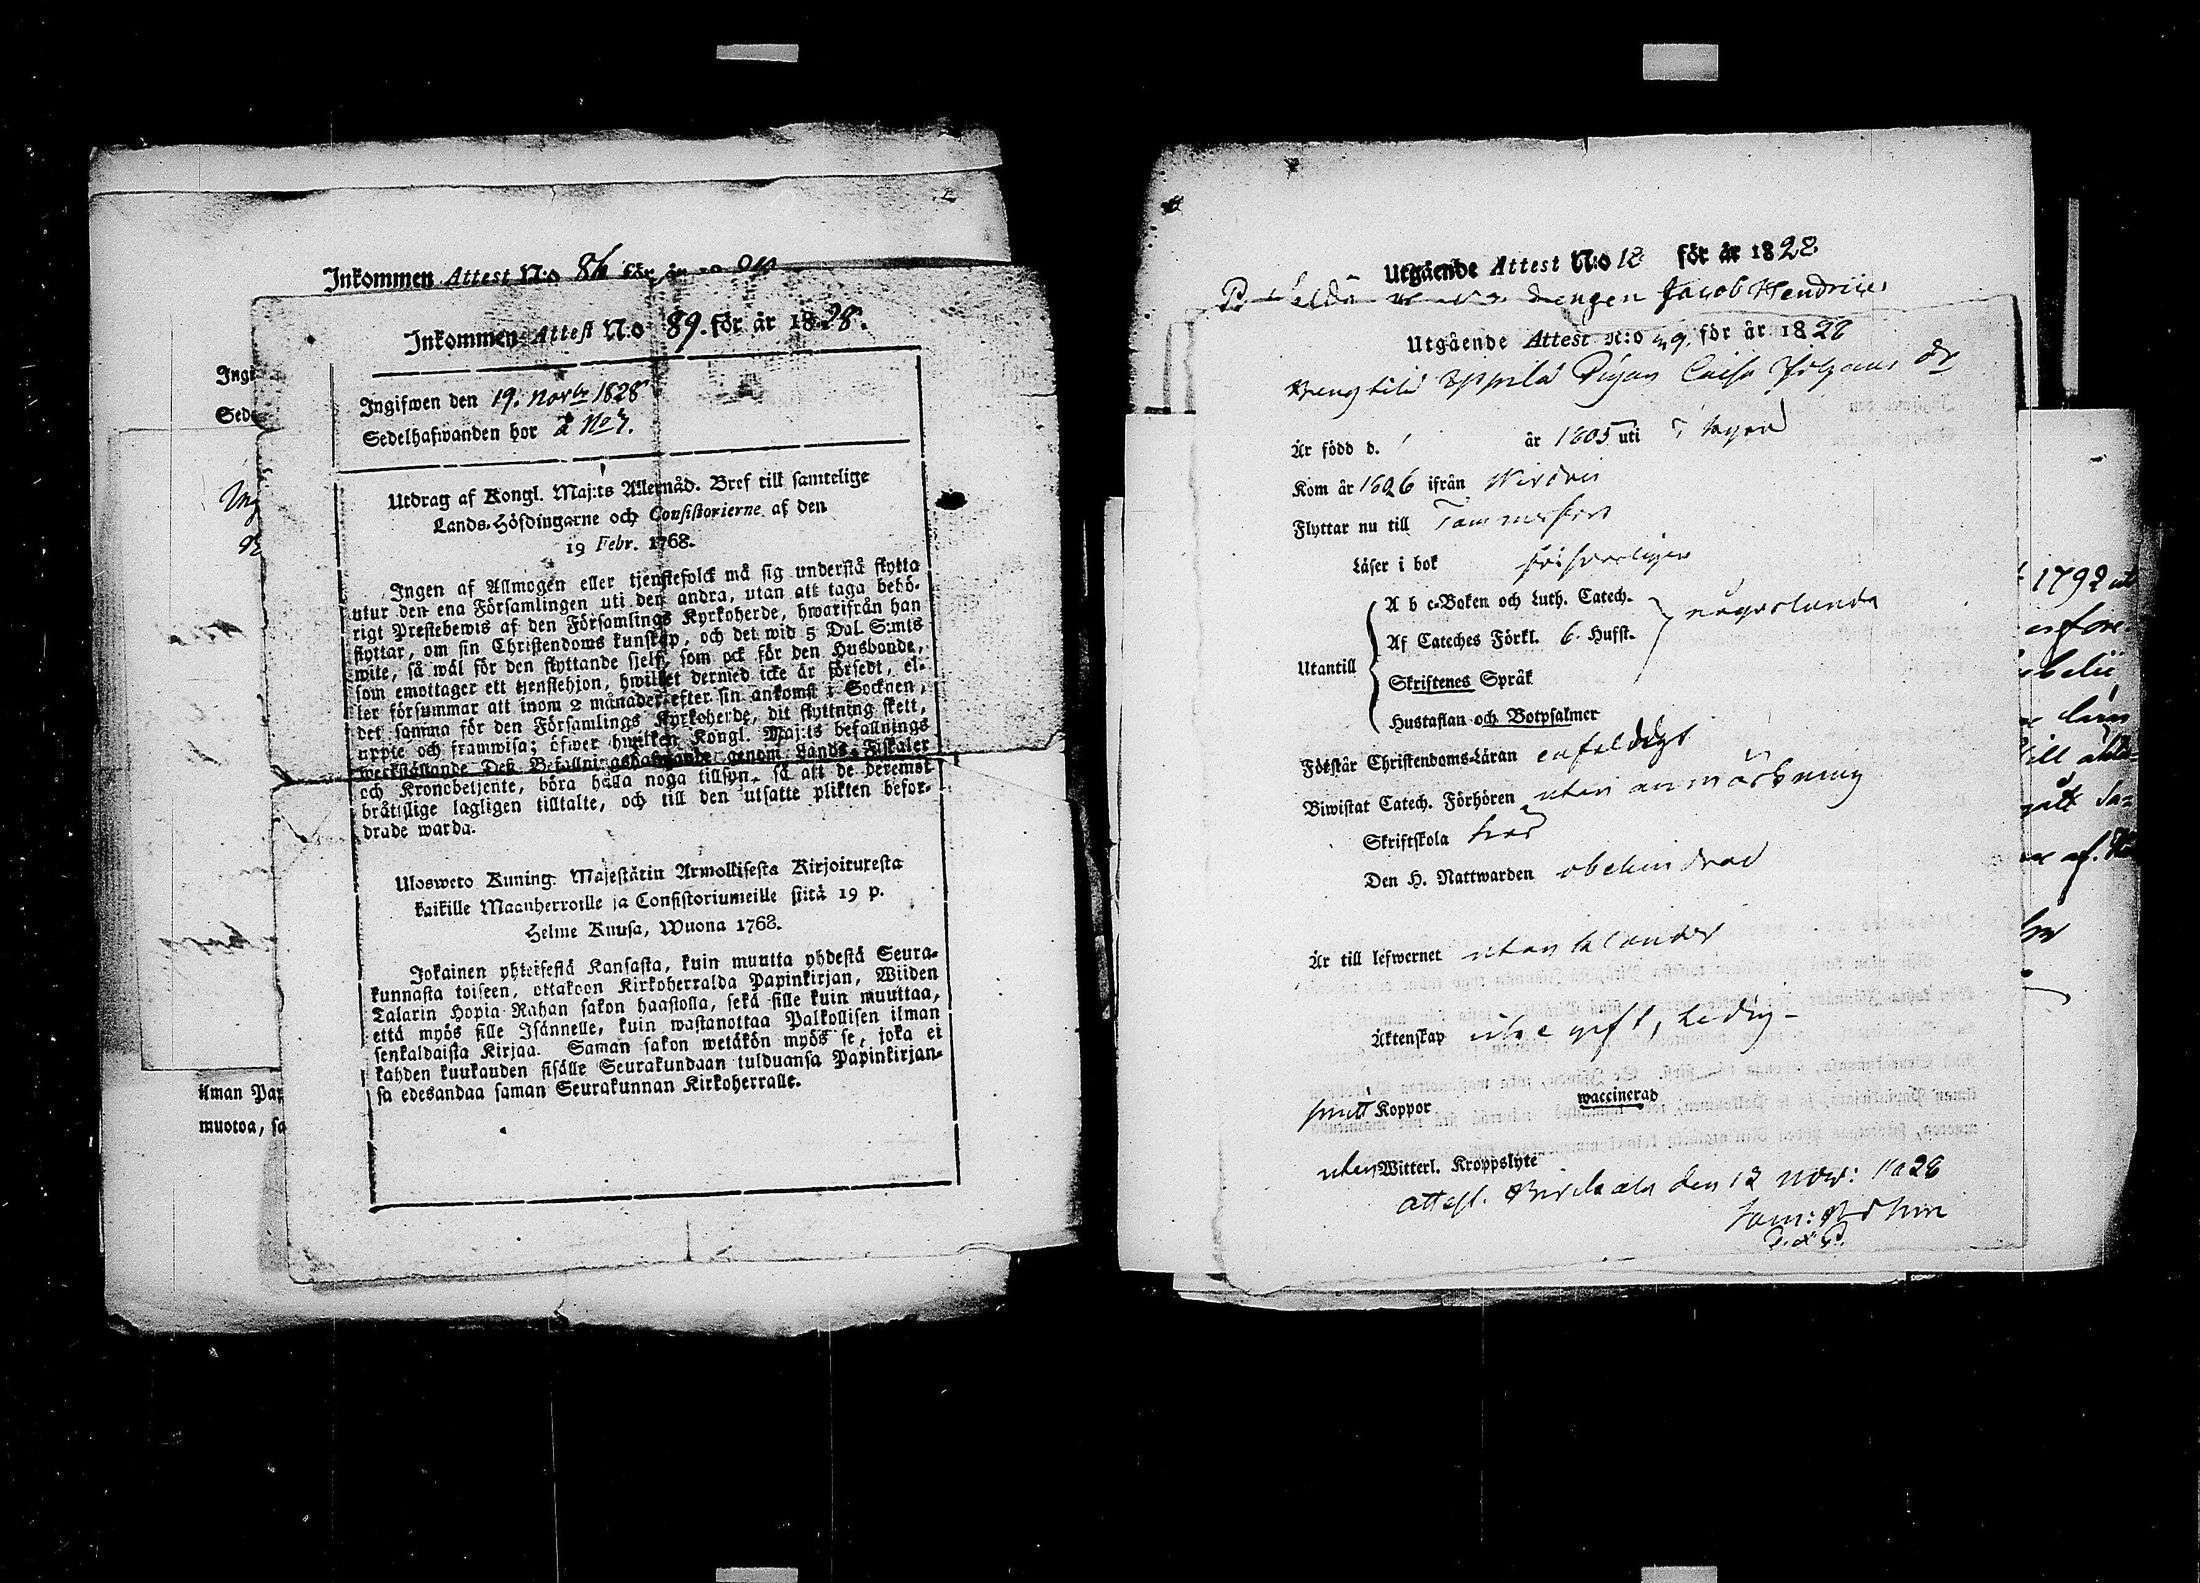 Inkommen Attest N:o 86 för år
Inkommen Attest N:o 89. för år 1828.
Ingifwen den 19. Novbr 1828
Sedelhafwanden bor å No 7.
Utdrag af Kongl. Maj:ts Allernåd. Bref till samtelige
Lands-Höfdingarne och Consistorierne af den
19 Febr. 1768.
Ingen af Allmogen eller tjenstefolck må sig understå flytta
utur den ena Församlingen uti den andra, utan att taga behö-
rigt Prestebewis af den Församlings Kyrkoherde, hwarifrån han
flyttar, om sin Christendoms kunskap, och det wid 5 Dal. S:mts
wite, så wäl för den flyttande sjelf, som ock för den Husbonde,
som emottager ett tjenstehjon, hwilket dermed icke är försedt, el-
ler försummar att inom 2 månader efter sin ankomst i Socknen,
det samma för den Församlings Kyrkoherde, dit flyttning skett,
uppte och framwisa; öfwer hwilken Kongl. Maj:ts befallnings
werkställande Deß Befallningshafwande genom Lands-Fiskaler
och Kronobetjente, böra hålla noga tillsyn, så att de deremot
bråttslige lagligen tilltalte, och till den utsatte plikten befor-
drade warda.
Ulosweto Kuning. Majestätin Armollisesta Kirjoituresta
kaikille Maanherroille ja Consistoriumeille siitä 19 p.
Helme Kuusa, Wuona 1768.
Jokainen yhteisestä Kansasta, kuin muutta yhdestä Seura-
kunnasta toiseen, ottakoon Kirkoherralda Papinkirjan, Wiiden
Talarin Hopia Rahan sakon haastolla, sekä sille kuin muuttaa,
että myös sille Isännelle, kuin wastanottaa Palkollisen ilman
senkaldaista Kirjaa. Saman sakon wetäkön myös se, joka ei
kahden kuukauden sisälle Seurakundaan tulduansa Papinkirjan-
sa edesandaa saman Seurakunnan Kirkoherralle.
ilman Pap
muotoa, sa
Utgående Attest N:o 18 för år 1828
Drengen Jacob Hendrics
Utgående Attest N:o 29. för år 1828
Pigan Caisa
Är född d. år 1805 uti
Kom år 1826 ifrån Wirdois
Flyttar nu till Tammerfors
Läser i bok försvarligen
Utantill
A b c-Boken och Luth. Catech.
Af Cateches Förkl. 6. Hufst.
någorlunda
Skriftenes Språk
Hustaflan och Botpsalmer
Förstår Christendoms-Läran enfaldigt
Biwistat Catech. Förhören utan anmärkning
Skriftskola
Den H. Nattwarden obehindrad
Är till lefwernet utan klander
Äktenskap icke gift, ledig-
haft Koppor waccinerad
utan Witterl. Kroppslyte
attest. Birckala den 12 Nov: 1828
1792